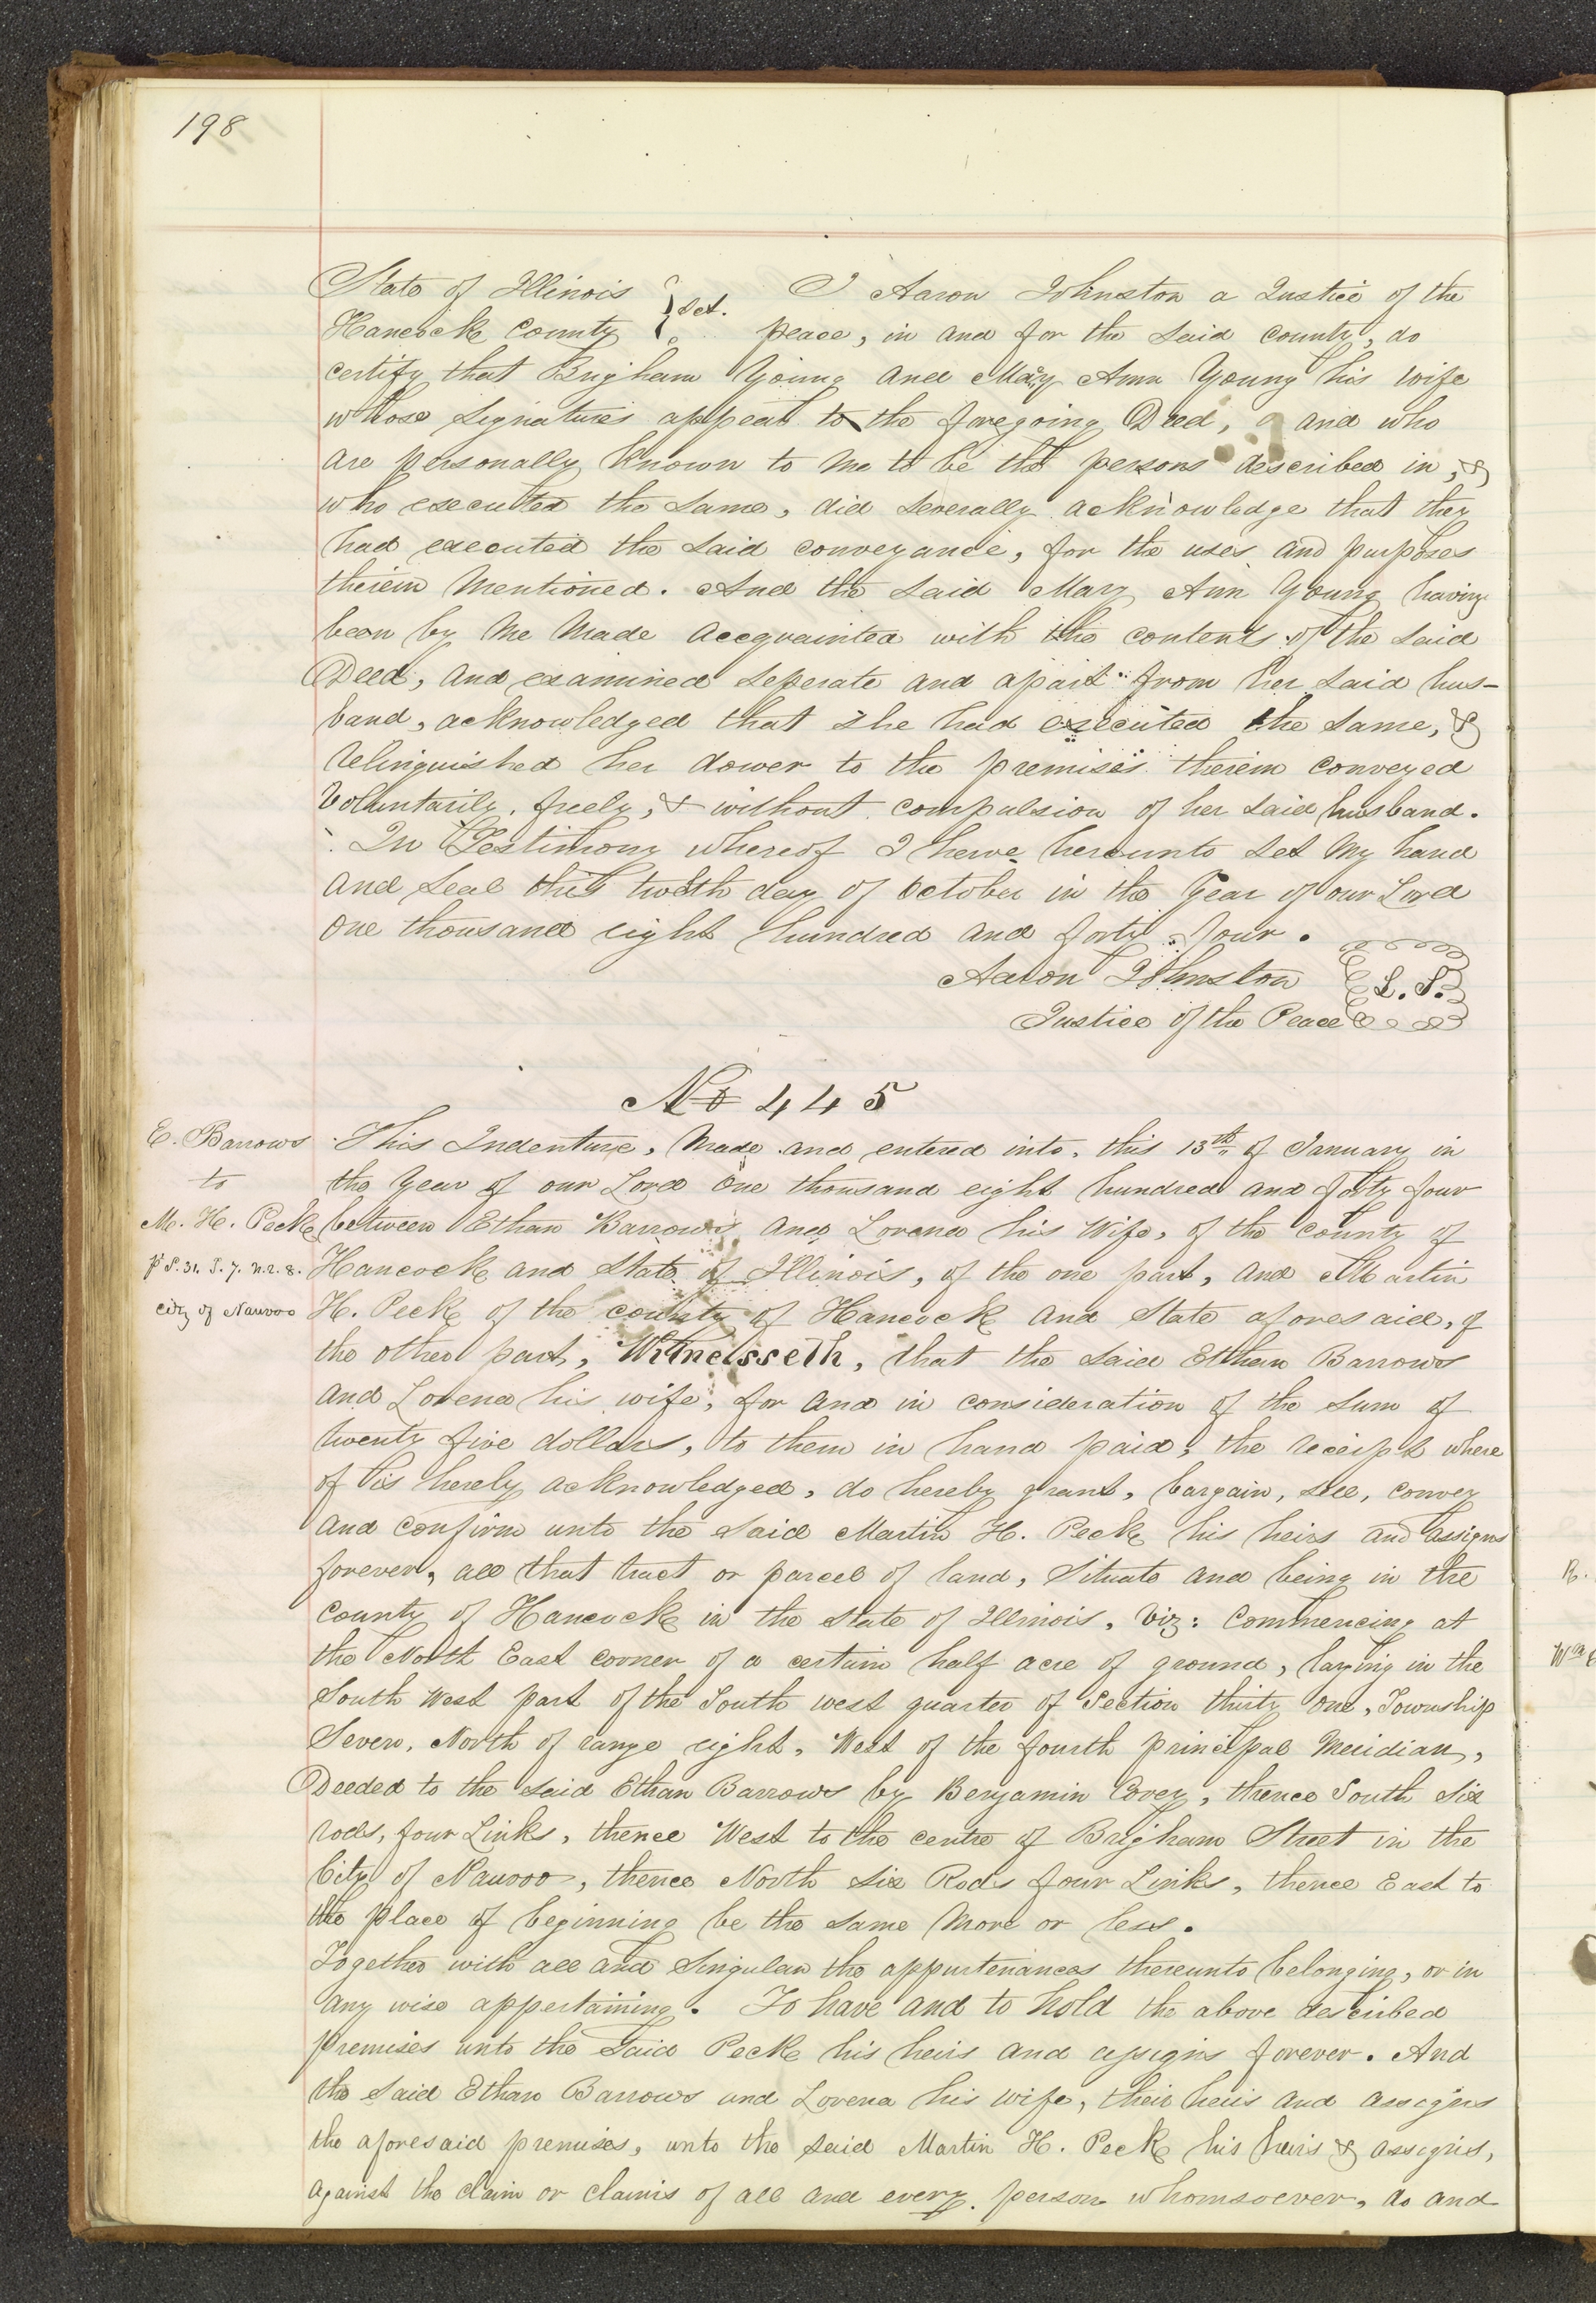 198
State of Illinois } Sct. I Aaron Johnston a Justice of the
Hancock County } peace, in and for the said county, do
certify that Brigham Young and Mary Ann Young his wife
whose signatures appear to the foregoing Deed, and who
are personally known to me to be the persons described in, &
who executed the same, did severally acknowledge that they
had executed the said conveyance, for the uses and purposes
therein mentioned. And the said Mary Ann Young having
been by me made accquainted with the contents of the said
Deed, and examined seperate and apart from her said hus-
band, acknowledged that she had executed the same, &
relinquished her dower to the premises therein conveyed
Voluntarily, freely, & without compulsion of her said husband.
In Testimony whereof I have hereunto set my hand
and seal this day of October in the Year of our Lord
one thousand eight hundred and forty four.
Aaron Johnston L. S.
Justice of the Peace
No 445
E. Barrows
to
M. H. Peck
P S. 31. T. 7. N. R. 8.
City of Nauvoo
This Indenture, Made and entered into, this 13th of January in
the Year of our Lord One thousand eight hundred and forty four
between Ethan Barrows and Lorena his Wife, of the county of
Hancock and State of Illinois, of the one part, and Martin
H. Peck of the county of Hancock and State aforesaid, of
the other part, Witnessseth, that the said Ethan Barrows
and Lorena his wife, for and in consideration of the sum of
twenty five dollars, to them in hand paid, the receipt where
of is herely acknowledged, do hereby grant, bargain, sell, convey
and confirm unto the said Martin H. Peck his heirs and assigns
forever, all that tract or parcel of land, Situate and being in the
county of Hancock in the State of Illinois, Viz: Commencing at
the North East corner of a certain half acre of ground, laying in the
South West part of the South west quarter of Section thirty One, Township
Seven, North of range eight, West of the fourth principal Meridian,
Deeded to the said Ethan Barrows by Benjamin Covey, thence South Six
rods, four Links, thence West to the centre of Brigham Street in the
City of Nauvoo, thence North six Rods four Links, thence East to
the place of beginning be the same more or less.
Together with all and Singular the appurtenances thereunto belonging, or in
any wise appertaining. To have and to hold the above described
premises unto the said Peck his heirs and assigns forever. And
the said Ethan Barrows and Lorena his wife, their heirs and assigns
the aforesaid premises, unto the said Martin H. Peck his heirs & assigns,
against the claim or claims of all and every person whomsoever, do and